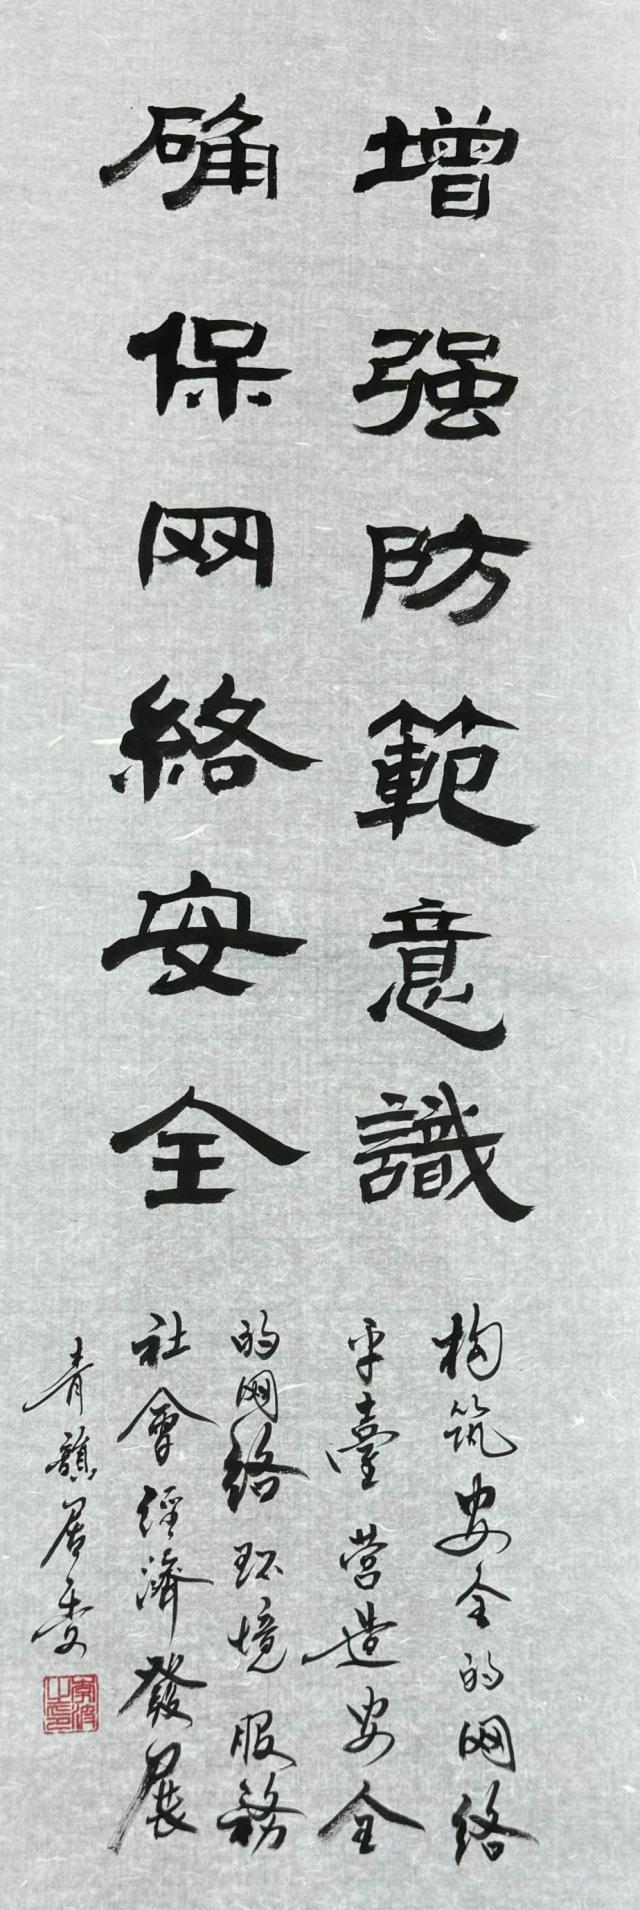 增强防範意識
确保网絡安全
构筑安全的网络
平臺营造安全
的网络环境服務
社會經濟發展
青韻居委